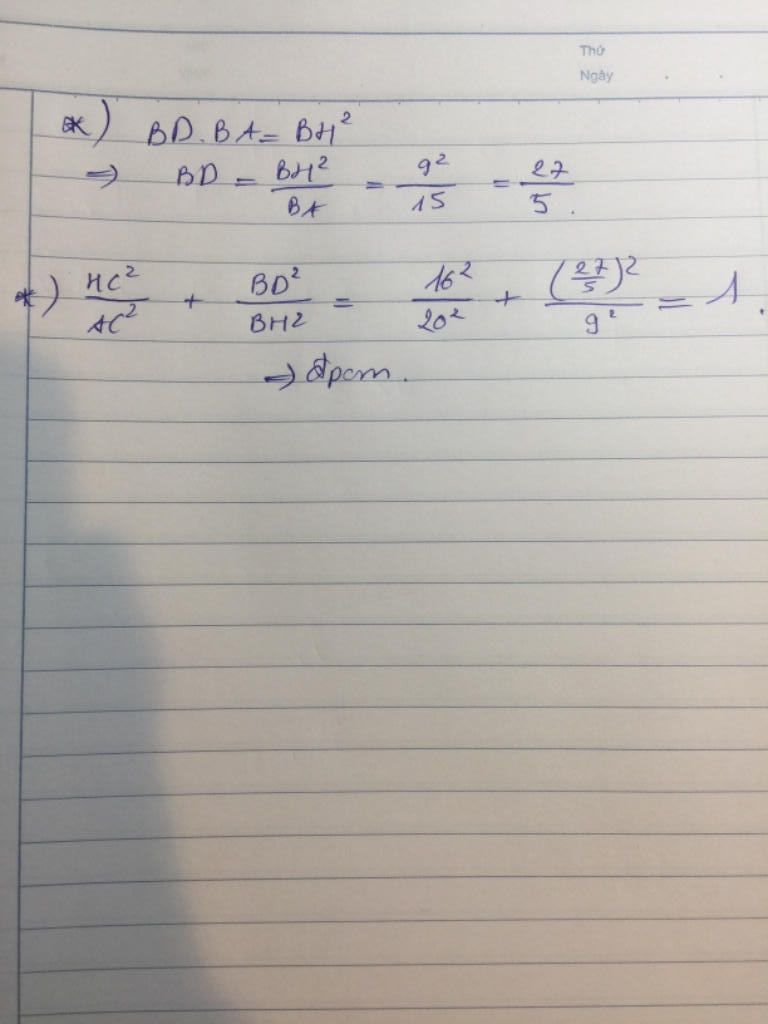 Thứ
Ngày
*) BD.BA = BH²
⇒ BD = BH²/BA = 9²/15 = 27/5.
*) HC²/AC² + BD²/BH² = 16²/20² + (27/5)²/9² = 1.
⇒ đpcm.